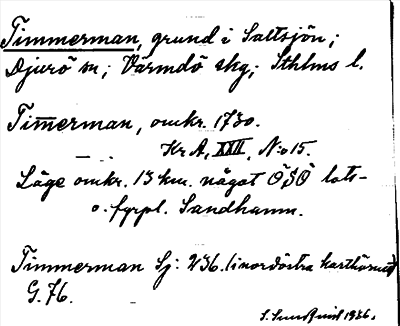 Timmerman, grund i Saltsjön;
Djurö sn; Värmdö skg; Sthlms l.
Timmerman, omkr. 1730.
Kr A, XXII, N:o 15.
Läge omkr. 13 km. något ÖSÖ lots-
o. fyrpl. Sandhamn.
Timmerman Sj: 236. (i nordöstra karthörnet)
G. 76.
1926.